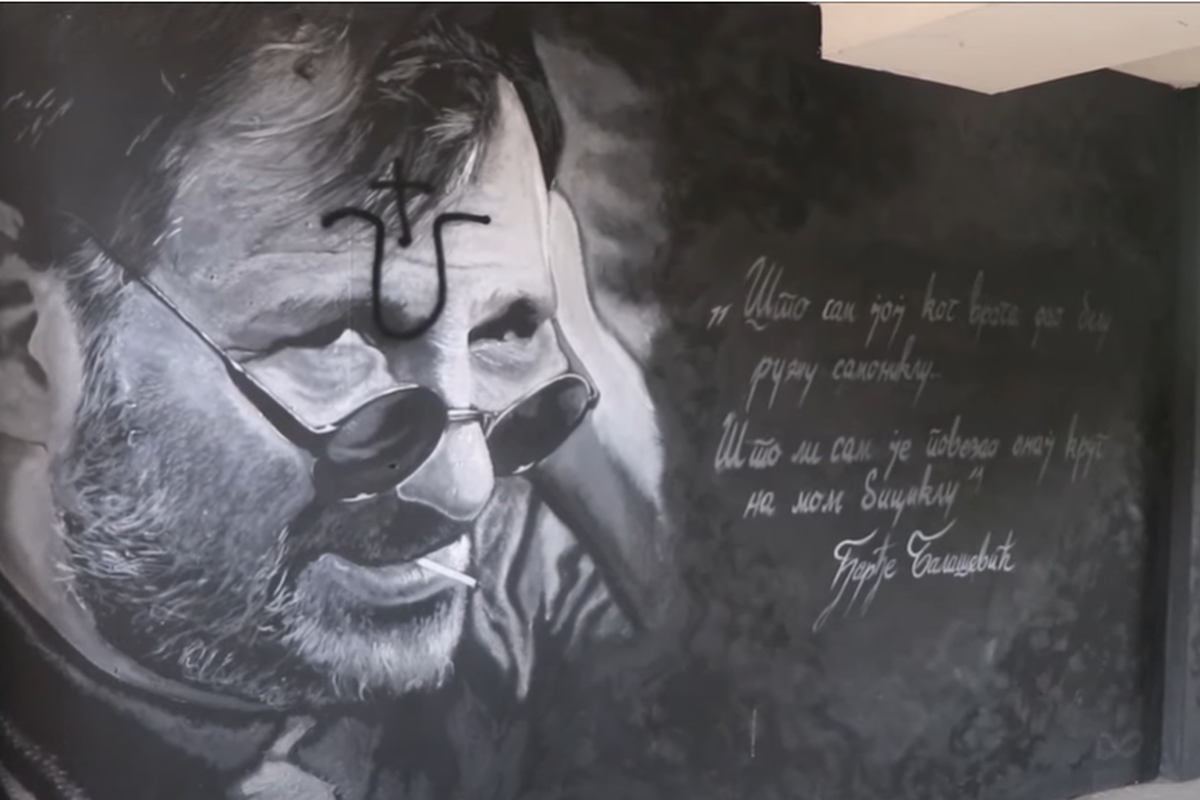 „ Што сам јој код врата дао белу
ружу самониклу...
Што ли сам је повезао онај круг
на мом бициклу"
Ђорђе Балашевић